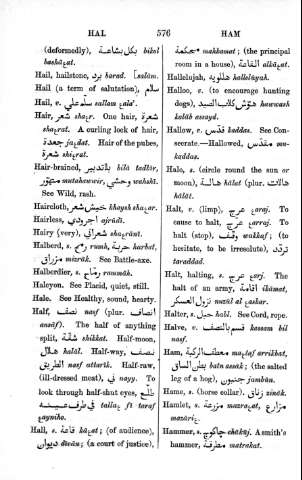 HAL 576 HAM
(deformedly), بكل بشاعة bikol
bashāɛat.
Hail, hailstone, برد barad. [salām.
Hail (a term of salutation), سلام
Hail, v. سلم علي sallam ɛala'.
Hair, شعر shaɛr. One hair, شعرة
shaɛrat. A curling lock of hair,
جعدة jaɛdat. Hair of the pubes,
شعرة shiɛrat.
Hair-brained, بلا تدبير bilā tadbīr,
متهور mutahawwir, وحشي wahshī.
See Wild, rash.
Haircloth, خيش شعر khaysh shaɛr.
Hairless, اجرودي ajrūdī.
Hairy (very), شعراني shaɛrānī.
Halberd, s. رمح rumh, حربة harbat,
مزراق mizrāk. See Battle-axe.
Halberdier, s. رماح rammāh.
Halcyon. See Placid, quiet, still.
Hale. See Healthy, sound, hearty.
Half, نصف nasf (plur. انصاف
ansāf). The half of anything
split, شقة shikkat. Half-moon,
هلال halāl. Half-way, نصف
الطريق nasf attarīk. Half-raw,
(ill-dressed meat), ني nayy. To
look through half-shut eyes, طلع
في طرف عينيه tallaɛ fī taraf
ɛaynihe.
Hall, s. قاعة kāɛat; (of audience),
ديوان dīwān; (a court of justice),
محكمة mahkamat; (the principal
room in a house), القاعة alkāɛat.
Hallelujah, هللويه hallelūyah.
Halloo, v. (to encourage hunting
dogs), هوش كلاب الصيد hawwash
kalāb assayd.
Hallow, v. قدس kaddas. See Con-
secrate.—Hallowed, مقدس mu-
kaddas.
Halo, s. (circle round the sun or
moon), هالة hālat (plur. هالات
hālāt.
Halt, v. (limp), عرج ɛaraj. To
cause to halt, عرج ɛarraj. To
halt (stop), وقف wakkaf; (to
hesitate, to be irresolute), تردد
taraddad.
Halt, halting, s. عرج ɛaraj. The
halt of an army, اقامة ikāmat,
نزول العسكر nazūl alɛaskar.
Halter, s. حبل habl. See Cord, rope.
Halve, v. قسم بالنصف kassam bil
nasf.
Ham, معطف الركبة maɛtaf arrikbat,
بطن الساق batn assāk; (the salted
leg of a hog), جنبون jambūn.
Hame, s. (horse collar), زناق zināk.
Hamlet, s. مزرعة mazraɛat, مزارع
mazāriɛ.
Hammer, s. چاكوچ chākūj. A smith's
hammer, مطرقة matrakat.